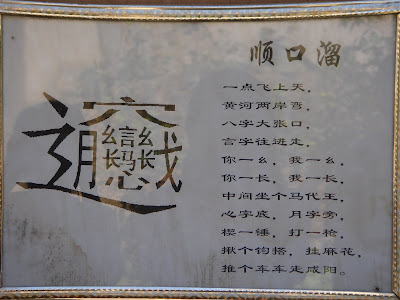 𰻝
顺口溜
一点飞上天，
黄河两岸弯，
八字大张口，
言字往进走，
你一幺，我一幺，
你一长，我一长，
中间坐个马代王，
心字底，月字旁，
楔一锤，打一枪，
揪个钩搭，挂麻花，
推个车车走咸阳。